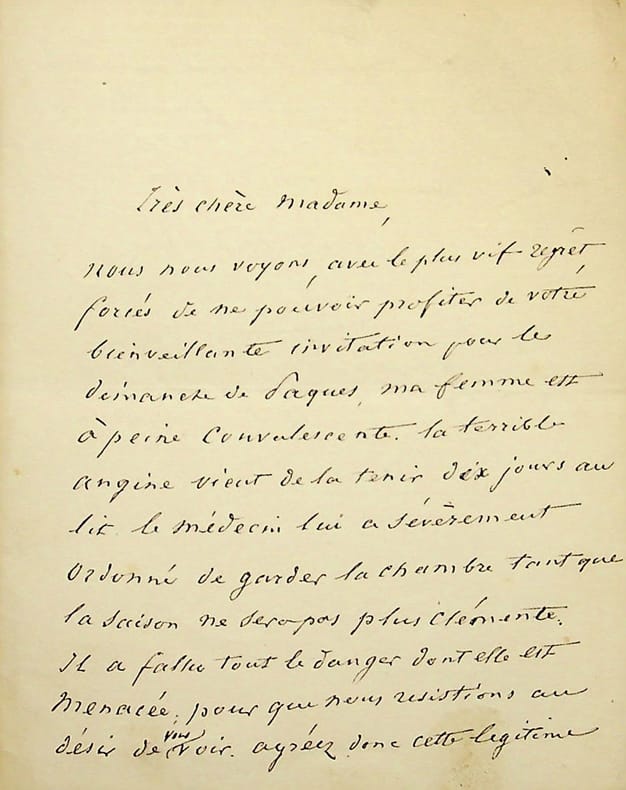 Très chère Madame,
nous nous voyons, avec le plus vif regret
forcés de ne pouvoir profiter de votre
bienveillante invitation pour le
dimanche de Paques, ma femme est
à peine convalescente. la terrible
angine vient de la tenir dix jours au
lit. le médecin lui a sévèrement
ordonné de garder la chambre tant que
la saison ne sera pas plus clémente.
Il a fallu tout le danger dont elle est
menacée, pour que nous résistions au
désir de vous voir. agréez donc cette légitime